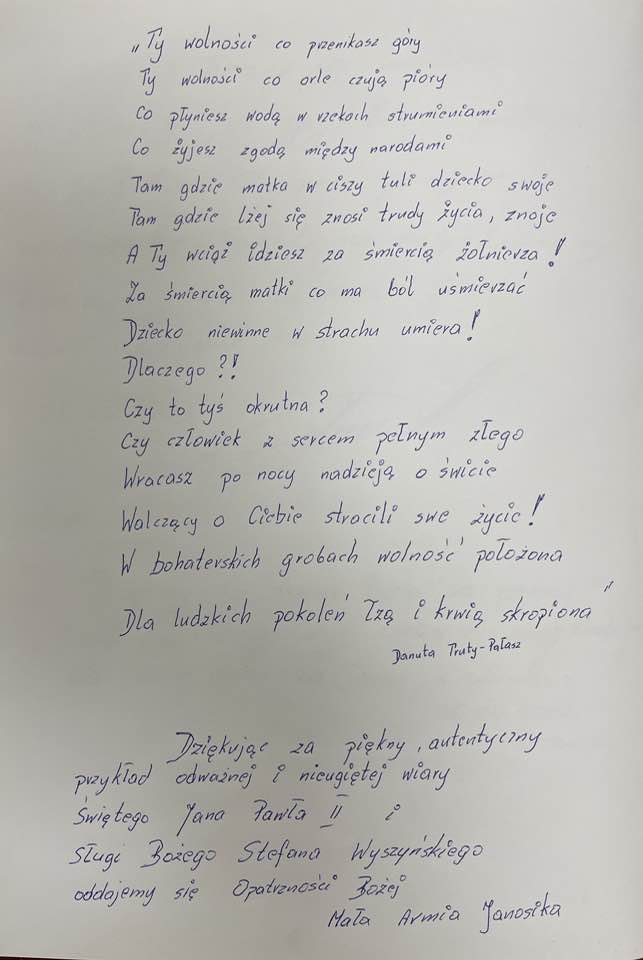 „Ty wolności co przenikasz góry
Ty wolności co orle czują pióry
Co płyniesz wodą w rzekach strumieniami
Co żyjesz zgodą między narodami
Tam gdzie matka w ciszy tuli dziecko swoje
Tam gdzie lżej się znosi trudy życia, znoje
A Ty wciąż idziesz za śmiercią żołnierza!
Za śmiercią matki co ma ból uśmierzać
Dziecko niewinne w strachu umiera!
Dlaczego?!!
Czy to tyś okrutna?
Czy człowiek z sercem pełnym złego
Wracasz po nocy nadzieją o świcie
Walczący o Ciebie stracili swe życie!
W bohaterskich grobach wolność położona
Dla ludzkich pokoleń łzą i krwią skropiona"
Danuta Truty-Pałasz
Dziękując za piękny, autentyczny
przykład odważnej i nieugiętej wiary
Świętego Jana Pawła II i
Sługi Bożego Stefana Wyszyńskiego
oddajemy się Opatrzności Bożej
Mała Armia Janosika